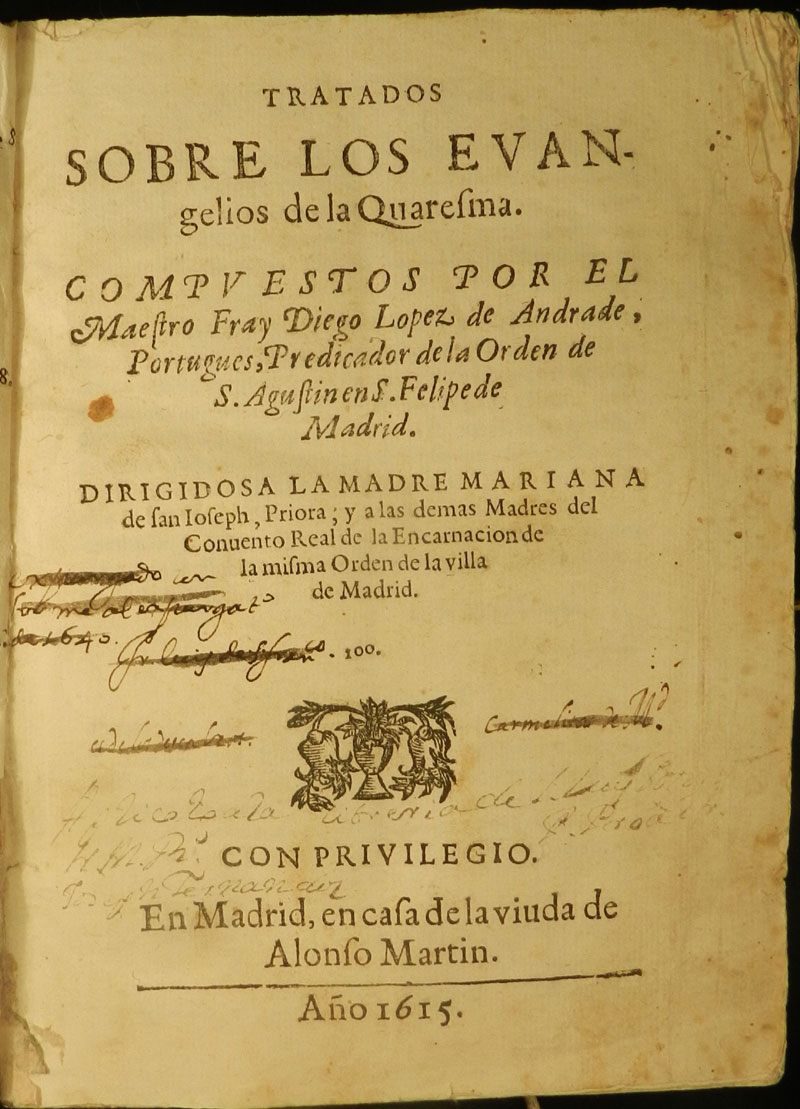 TRATADOS
SOBRE LOS EVAN-
gelios de la Quareſma.
COMPVESTOS POR EL
Maeſtro Fray Diego Lopez de Andrade,
Portugues, Predicador de la Orden de
S. Aguſtin en S. Felipe de
Madrid.
DIRIGIDOS A LA MADRE MARIANA
de ſan Ioſeph, Priora; y a las demas Madres del
Conuento Real de la Encarnacion de
la miſma Orden de la villa
de Madrid.
de 1640.
100.
CON PRIVILEGIO.
En Madrid, en caſa de la viuda de
Alonſo Martin.
Año 1615.